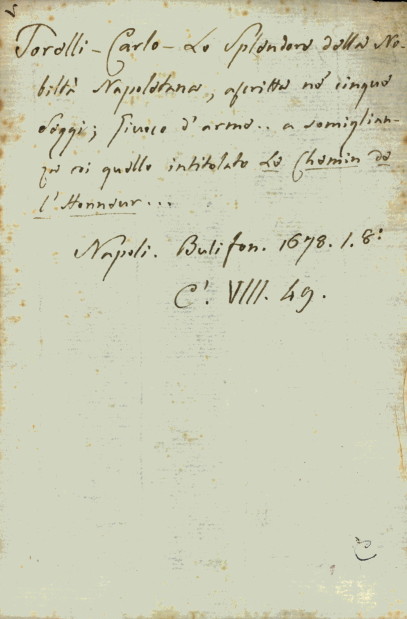 Torelli - Carlo - Lo Splendore della No-
biltà Napoletana, ascritta ne' cinque
Seggi; Giuoco d'arme.. a somiglian-
za di quello intitolato Le Chemin de
l'Honneur...
Napoli. Bulifon. 1678. 1. 8:
C'. VIII. 49.